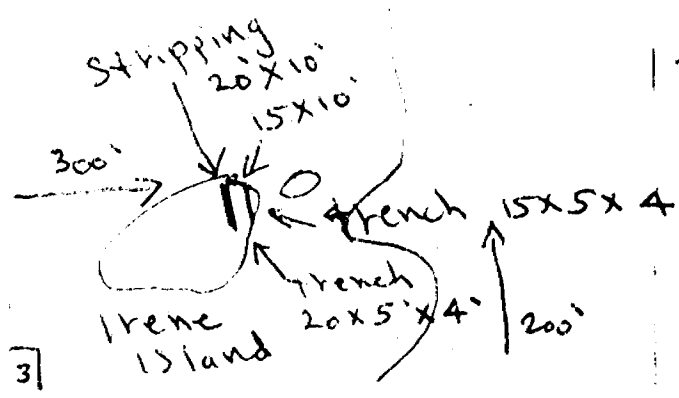 Stripping
20' X 10'
15 X 10'
300'
trench 15 X 5 X 4
trench
20 X 5' X 4'
200'
Irene
Island
3